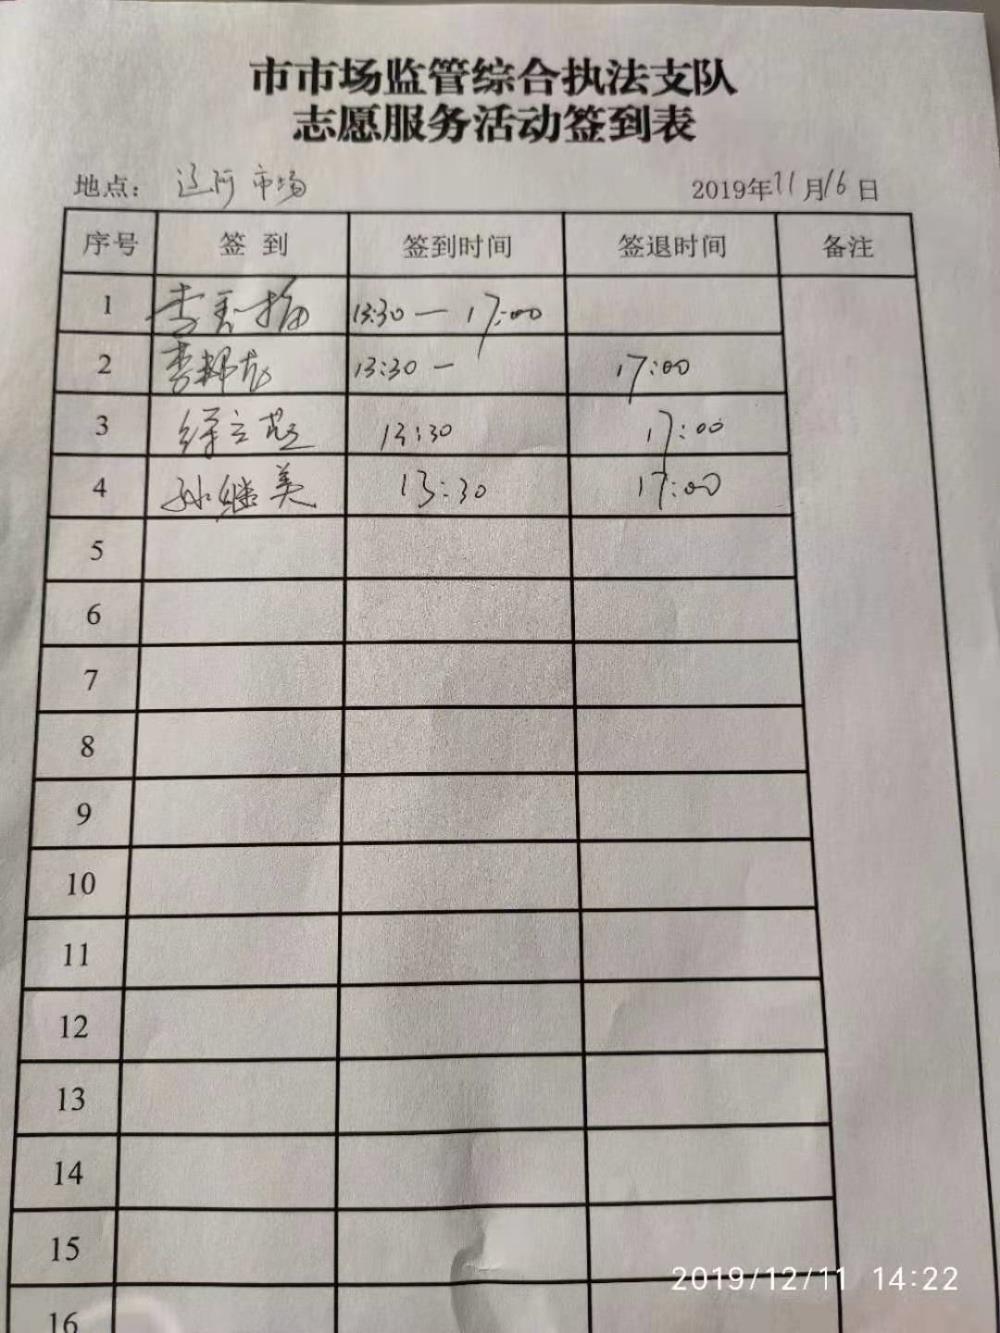 市市场监管综合执法支队
志愿服务活动签到表
地点： 辽河市场 2019年11月16日
序号 签到 签到时间 签退时间 备注
1 李 梅 13:30 — 17:00
2 李 龙 13:30 — 17:00
3 徐立 13:30 17:00
4 孙继美 13:30 17:00
5
6
7
8
9
10
11
12
13
14
15
16
2019/12/11 14:22